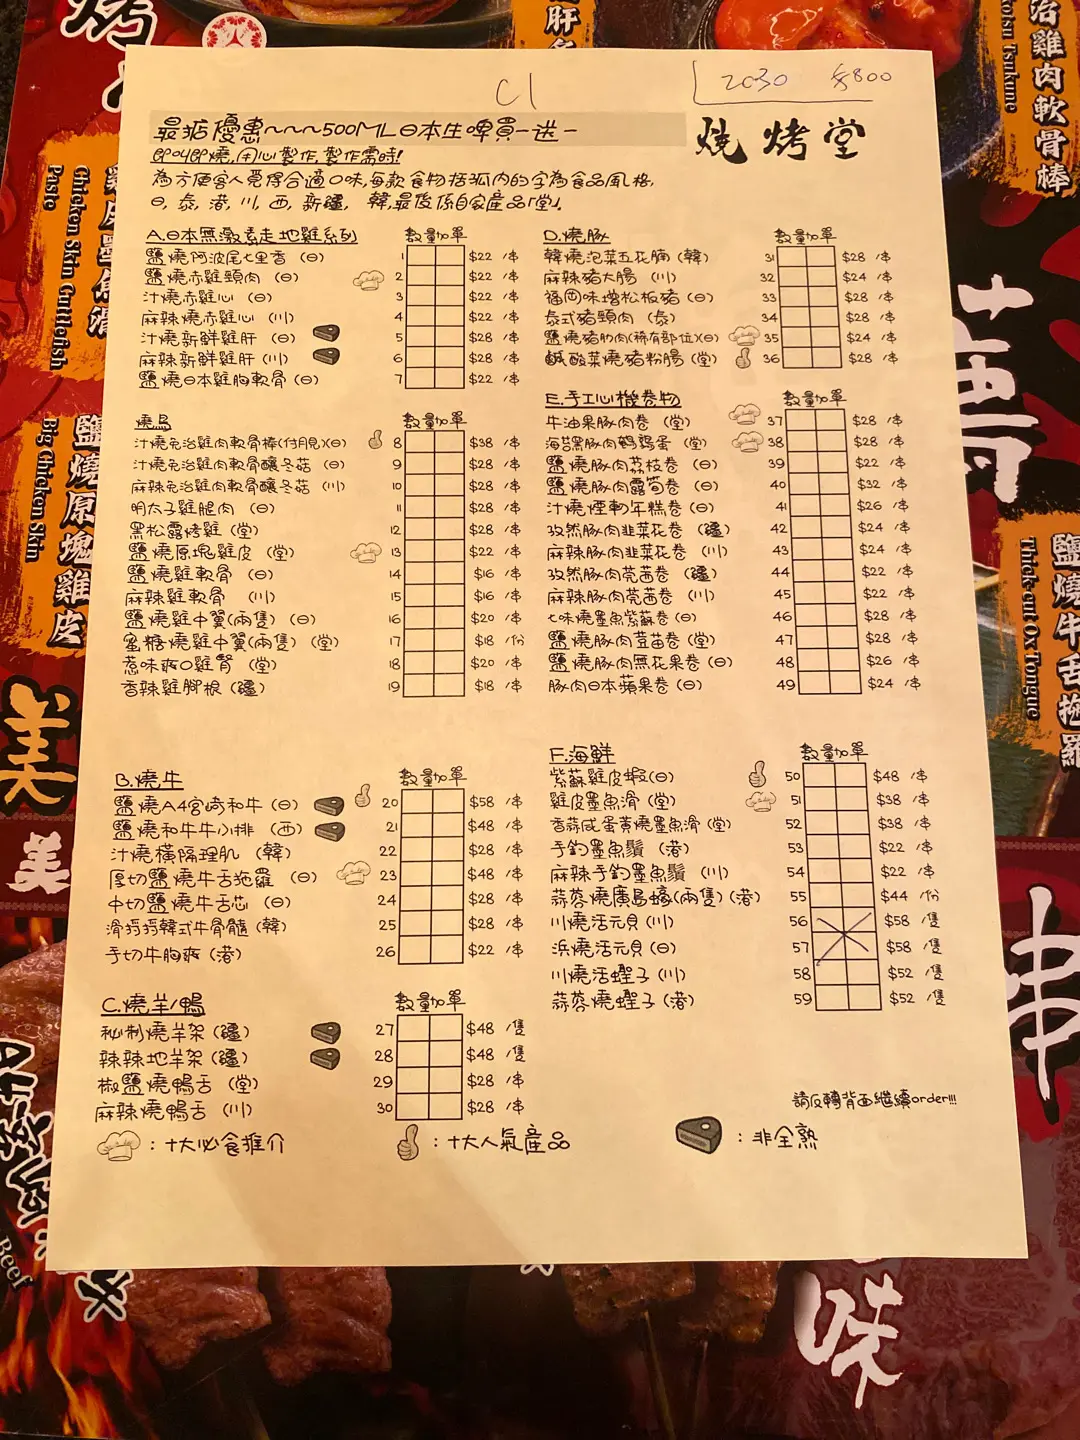 C1
2030 走800
最新優惠~~~500ML日本生啤買一送一
燒烤堂
即叫即燒,用心製作,製作需時!
為方便客人覓得合適口味,每款食物括弧內的字為食品風格,
日, 泰, 港, 川, 西, 新疆, 韓,最後係自家產品「堂」.
A.日本無激素走地雞系列 數量加單
鹽燒阿波尾七里香 (日) 1 $22 /串
鹽燒赤雞頸肉 (日) 2 $22 /串
汁燒赤雞心 (日) 3 $22 /串
麻辣燒赤雞心 (川) 4 $22 /串
汁燒新鮮雞肝 (日) 5 $28 /串
麻辣新鮮雞肝 (川) 6 $28 /串
鹽燒日本雞胸軟骨 (日) 7 $22 /串
燒鳥 數量加單
汁燒免治雞肉軟骨棒(付月見)(日) 8 $38 /串
汁燒免治雞肉軟骨釀冬菇 (日) 9 $28 /串
麻辣免治雞肉軟骨釀冬菇 (川) 10 $28 /串
明太子雞腿肉 (日) 11 $28 /串
黑松露烤雞 (堂) 12 $28 /串
鹽燒原塊雞皮 (堂) 13 $22 /串
鹽燒雞軟骨 (日) 14 $16 /串
麻辣雞軟骨 (川) 15 $16 /串
鹽燒雞中翼(兩隻) (日) 16 $20 /串
蜜糖燒雞中翼(兩隻) (堂) 17 $18 /份
惹味爽口雞腎 (堂) 18 $20 /串
香辣雞腳根 (疆) 19 $18 /串
B.燒牛 數量加單
鹽燒A4宮崎和牛 (日) 20 $58 /串
鹽燒和牛牛小排 (西) 21 $48 /串
汁燒橫隔理肌 (韓) 22 $28 /串
厚切鹽燒牛舌拖羅 (日) 23 $48 /串
中切鹽燒牛舌芯 (日) 24 $28 /串
滑捋捋韓式牛骨髓 (韓) 25 $28 /串
手切牛胸爽 (港) 26 $22 /串
C.燒羊/鴨 數量加單
秘制燒羊架 (疆) 27 $48 /隻
辣辣地羊架 (疆) 28 $48 /隻
椒鹽燒鴨舌 (堂) 29 $28 /串
麻辣燒鴨舌 (川) 30 $28 /串
D.燒豚 數量加單
韓燒泡菜五花腩 (韓) 31 $28 /串
麻辣豬大腸 (川) 32 $24 /串
福岡味增松板豬 (日) 33 $28 /串
泰式豬頸肉 (泰) 34 $28 /串
鹽燒豬肋肉(稀有部位)(日) 35 $24 /串
鹹酸菜燒豬粉腸 (堂) 36 $28 /串
E.手工心機卷物 數量加單
牛油果豚肉卷 (堂) 37 $28 /串
海苔黑豚肉鵪鶉蛋 (堂) 38 $28 /串
鹽燒豚肉荔枝卷 (日) 39 $22 /串
鹽燒豚肉露筍卷 (日) 40 $32 /串
汁燒煙肉年糕卷 (日) 41 $26 /串
孜然豚肉韭菜花卷 (疆) 42 $24 /串
麻辣豚肉韭菜花卷 (川) 43 $24 /串
孜然豚肉芫茜卷 (疆) 44 $22 /串
麻辣豚肉芫茜卷 (川) 45 $22 /串
七味燒墨魚紫蘇卷 (日) 46 $28 /串
鹽燒豚肉荳苗卷 (堂) 47 $28 /串
鹽燒豚肉無花果卷 (日) 48 $26 /串
豚肉日本蘋果卷 (日) 49 $24 /串
F.海鮮 數量加單
紫蘇雞皮蝦(日) 50 $48 /串
雞皮墨魚滑 (堂) 51 $38 /串
香蒜咸蛋黃燒墨魚滑 (堂) 52 $38 /串
手釣墨魚鬚 (港) 53 $22 /串
麻辣手釣墨魚鬚 (川) 54 $22 /串
蒜蓉燒廣島蠔(兩隻) (港) 55 $44 /份
川燒活元貝 (川) 56 $58 /隻
浜燒活元貝 (日) 57 $58 /隻
川燒活蟶子 (川) 58 $52 /隻
蒜蓉燒蟶子 (港) 59 $52 /隻
請反轉背面繼續order!!!
:十大必食推介
:十大人氣產品
:非全熟
Chicken Skin Cuttlefish Paste
鹽燒原塊雞皮
Big Chicken Skin
治雞肉軟骨棒
Tsukune
鹽燒牛舌拖羅
Thick-cut Ox Tongue
美
美
串
味
Beef